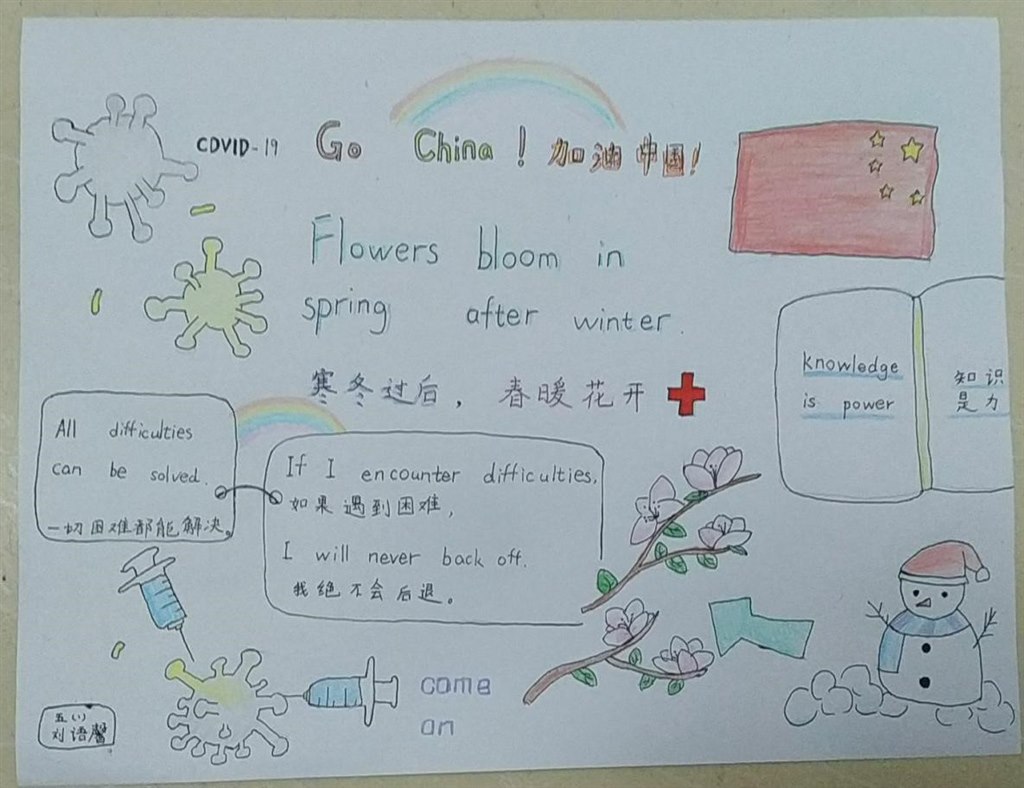 COVID-19
Go China! 加油中国!
Flowers bloom in
spring after winter.
寒冬过后，春暖花开
knowledge
is power
知识
是力
All difficulties
can be solved.
一切困难都能解决。
If I encounter difficulties,
如果遇到困难，
I will never back off.
我绝不会后退。
come
on
五(1)
刘语馨